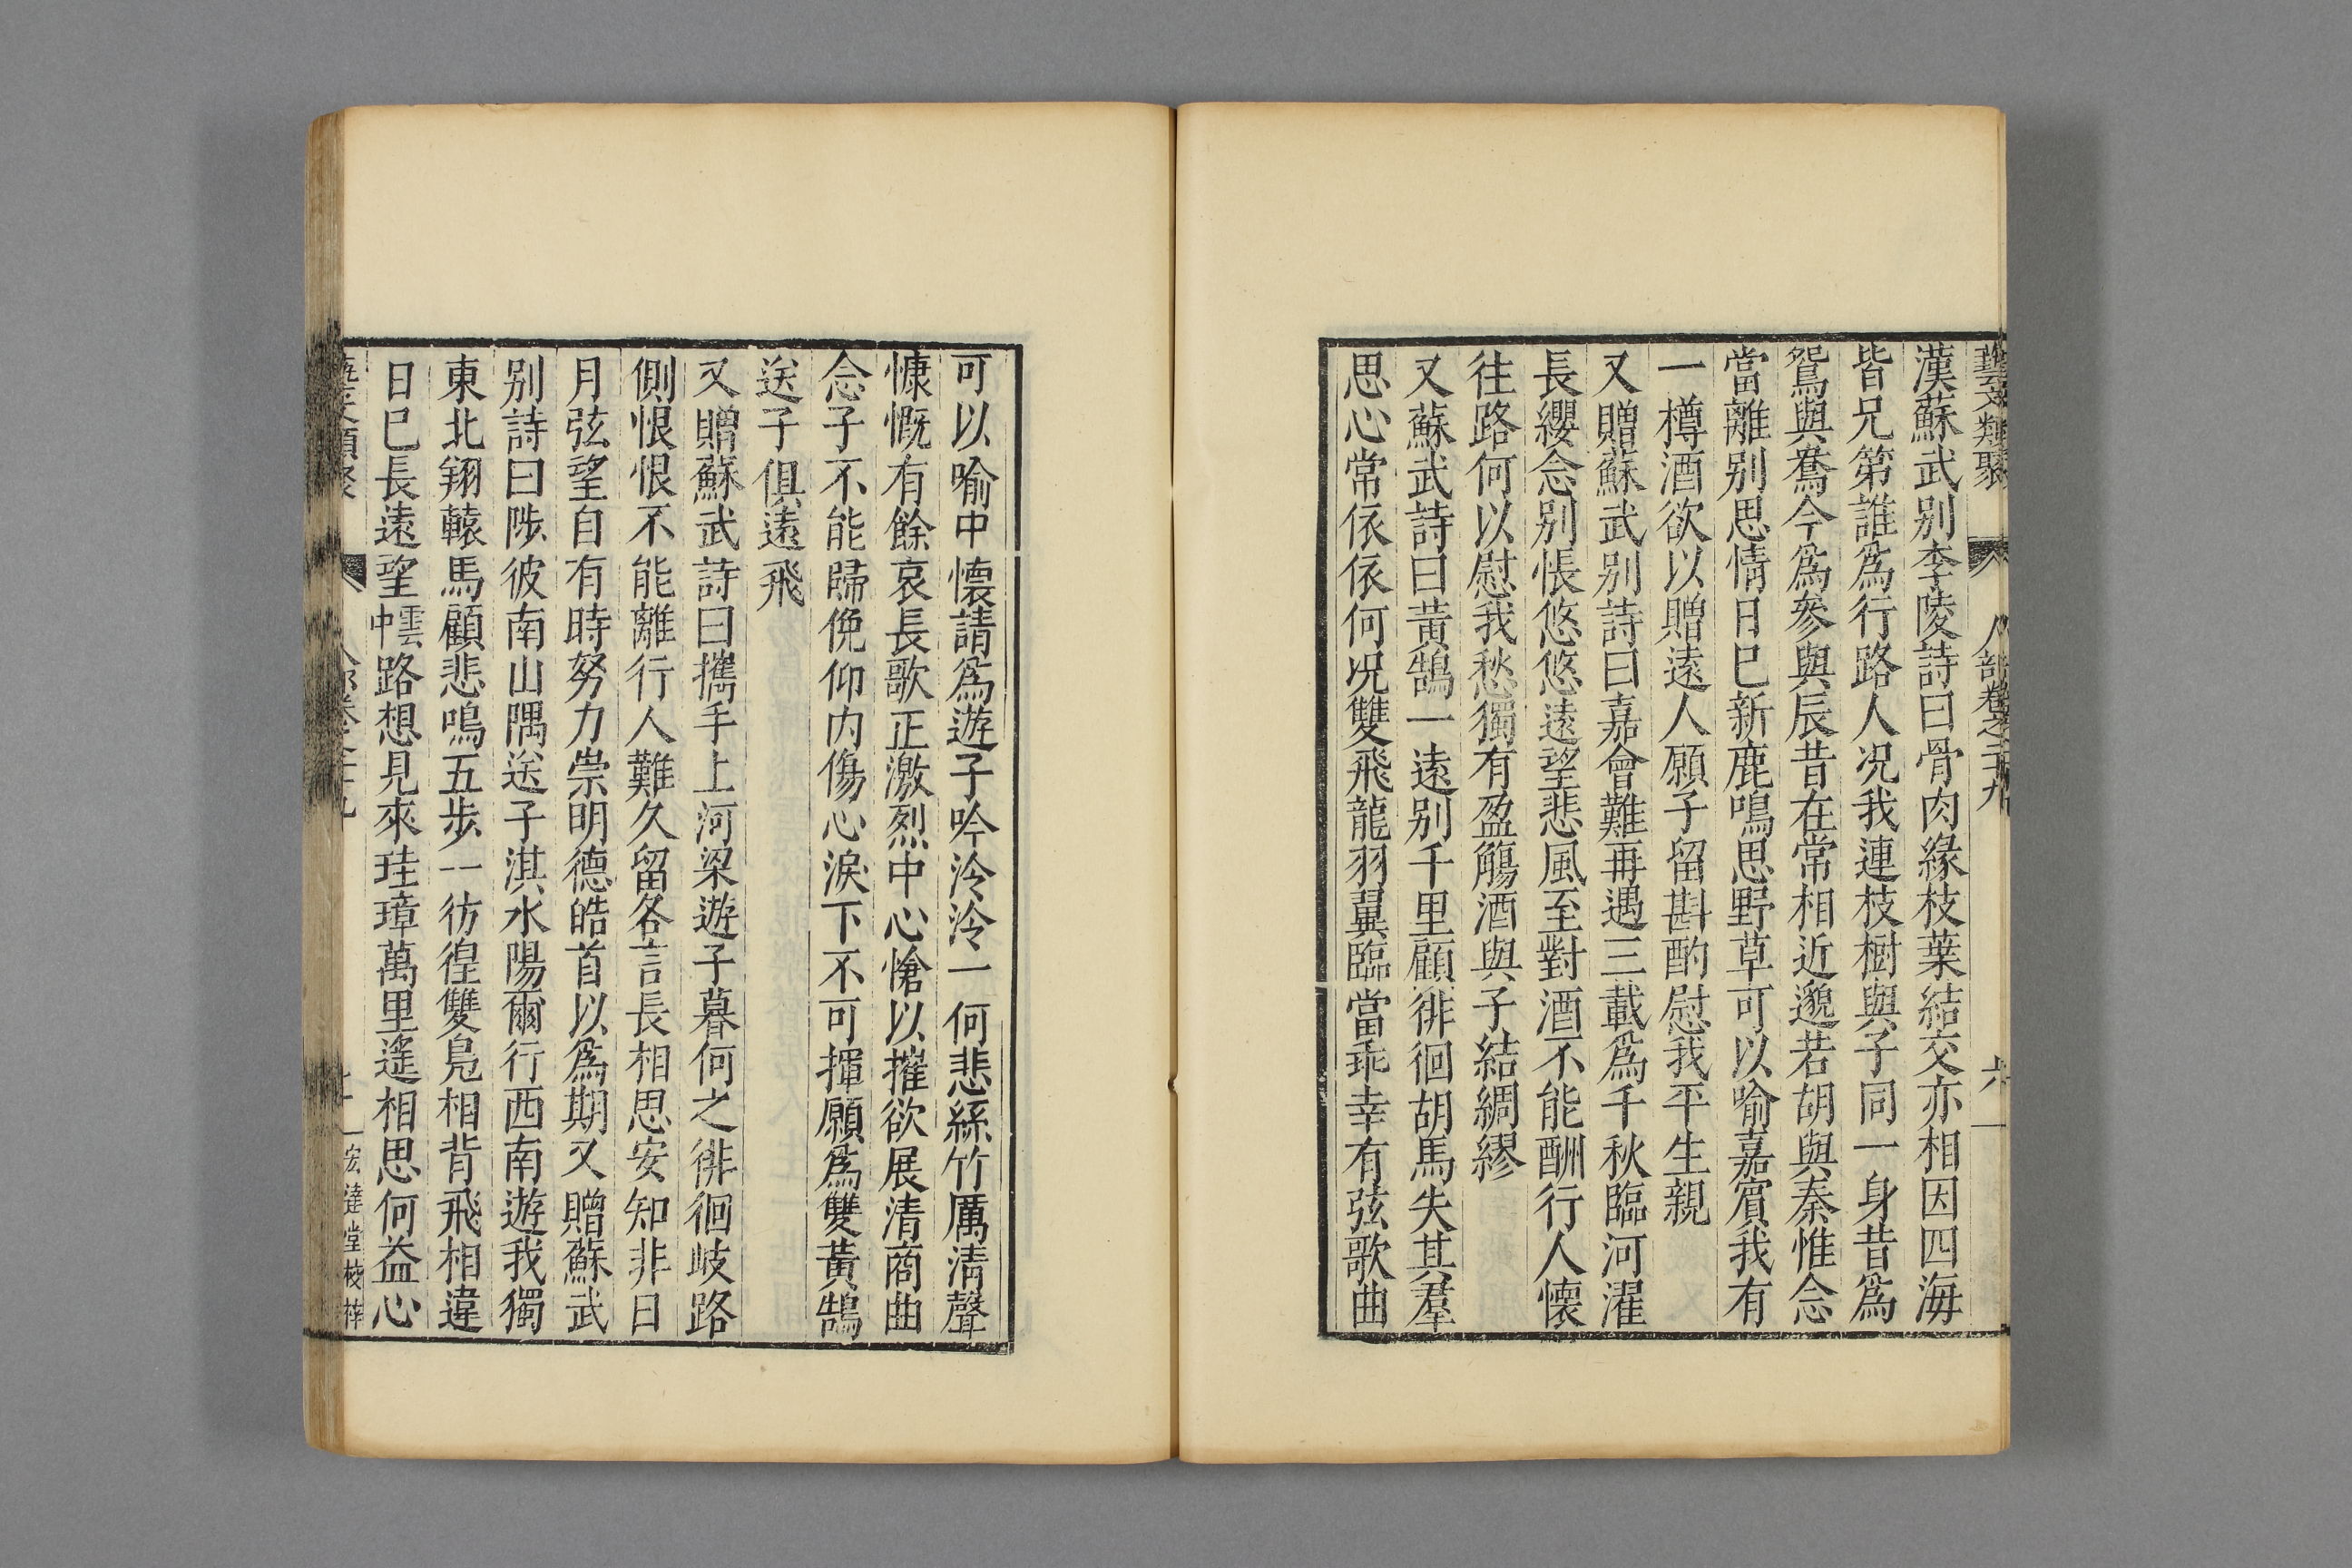 藝文類聚 人部卷之二十九 六
漢蘇武别李陵詩曰骨肉緣枝葉結交亦相因四海
皆兄第誰爲行路人况我連枝樹與子同一身昔爲
鴛與鴦今爲參與辰昔在常相近邈若胡與秦惟念
當離别思情日巳新鹿鳴思野草可以喻嘉賔我有
一樽酒欲以贈遠人願子留斟酌慰我平生親
又贈蘇武别詩曰嘉會難再遇三載爲千秋臨河濯
長纓念别悵悠悠遠望悲風至對酒不能酬行人懐
往路何以慰我愁獨有盈觴酒與子結綢繆
又蘇武詩曰黃鵠一遠别千里顧徘徊胡馬失其羣
思心常依依何况雙飛龍羽翼臨當乖幸有弦歌曲
可以喻中懐請爲遊子吟泠泠一何悲絲竹厲淸聲
慷慨有餘哀長歌正激烈中心愴以摧欲展清商曲
念子不能歸俛仰内傷心淚下不可揮願爲雙黃鵠
送子俱遠飛
又贈蘇武詩曰攜手上河梁遊子暮何之徘徊岐路
側恨恨不能離行人難久留各言長相思安知非日
月弦望自有時努力崇明德皓首以爲期又贈蘇武
别詩曰陟彼南山隅送子淇水陽爾行西南遊我獨
東北翔轅馬顧悲鳴五步一彷徨雙鳧相背飛相違
日巳長遠望雲中路想見來珪璋萬里遙相思何益心
文類聚 人部卷之二十九 宏達堂校梓